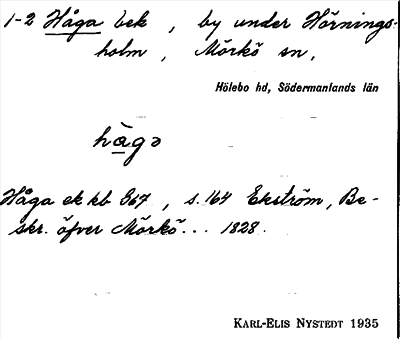 1-2 Håga bek , by under Hörnings-
holm , Mörkö sn,
Hölebo hd, Södermanlands län
hàgə
Håga ek kb 367 , s. 164 Ekström, Be-
skr. öfver Mörkö... 1828.
KARL-ELIS NYSTEDT 1935